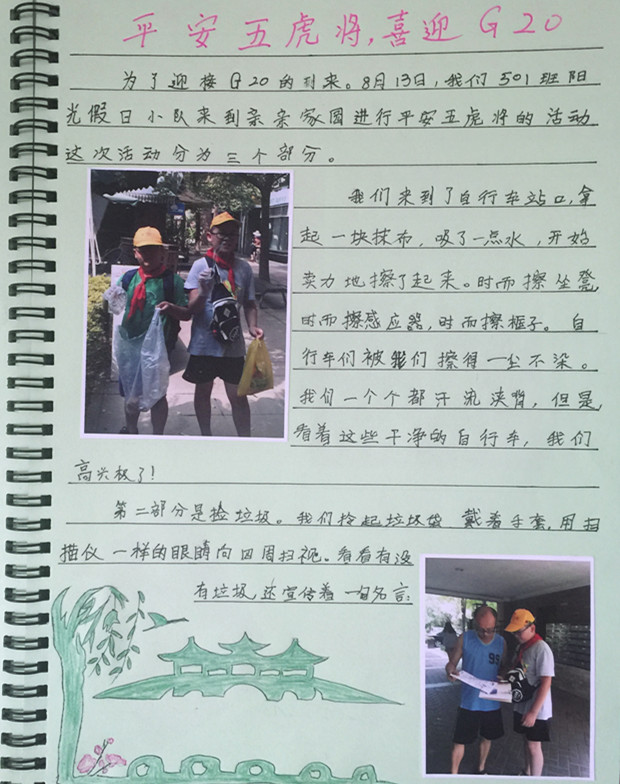 平安五虎将,喜迎G20
为了迎接G20的到来。8月13日,我们501班阳
光假日小队来到亲亲家园进行平安五虎将的活动
这次活动分为三个部分。
我们来到了自行车站口,拿
起一块抹布,吸了一点水,开始
卖力地擦了起来。时而擦坐凳
时而擦感应器,时而擦框子。自
行车们被我们擦得一尘不染。
我们一个个都汗流浃背,但是,
看着这些干净的自行车,我们
高兴极了!
第二部分是捡垃圾。我们拎起垃圾袋 戴着手套,用扫
描仪一样的眼睛向四周扫视。看看有没
有垃圾,还宣传着一句名言: